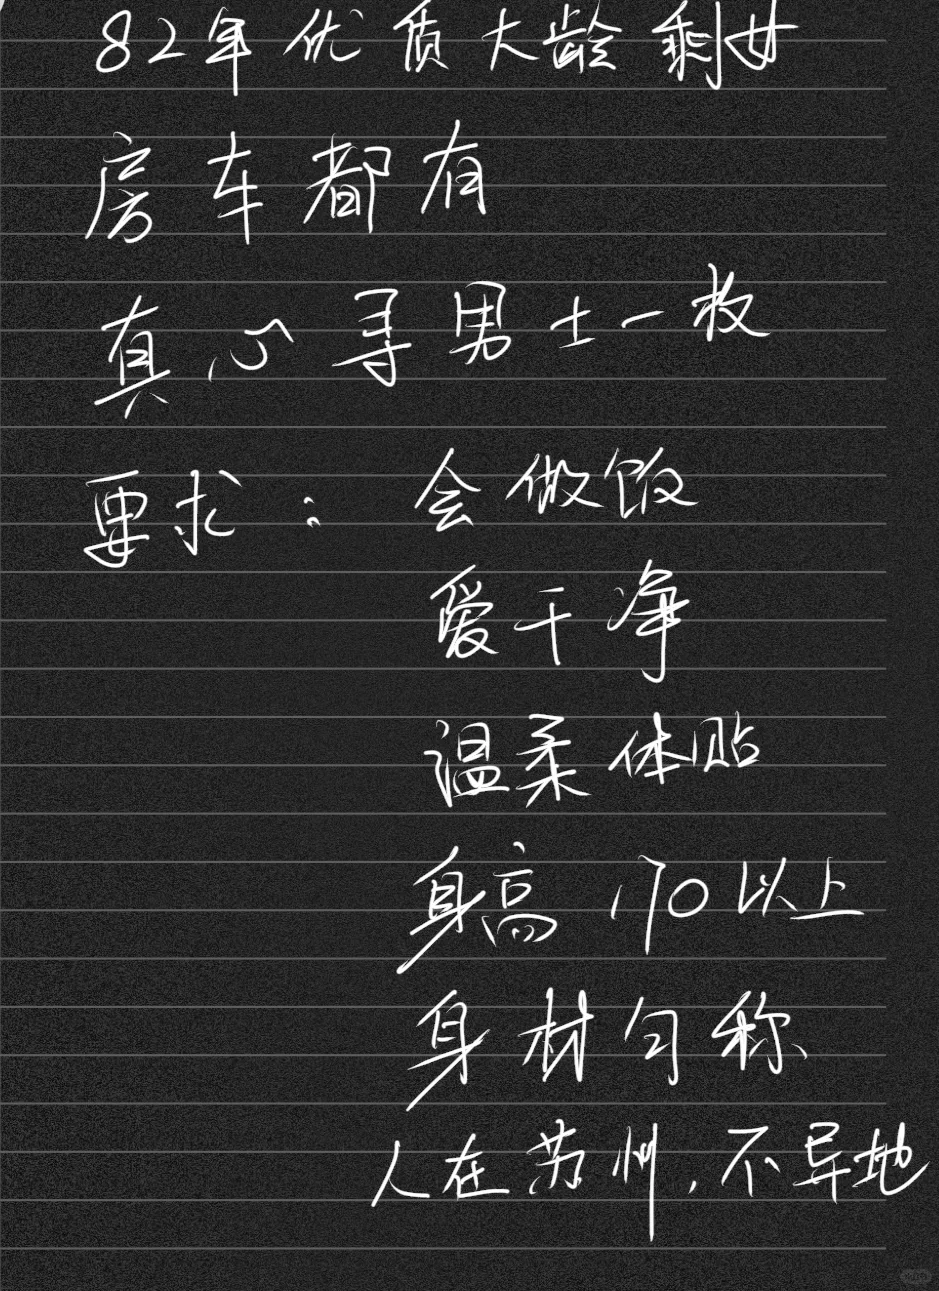 82年优质大龄剩女
房车都有
真心寻男士一枚
要求：会做饭
爱干净
温柔体贴
身高170以上
身材匀称
人在苏州,不异地